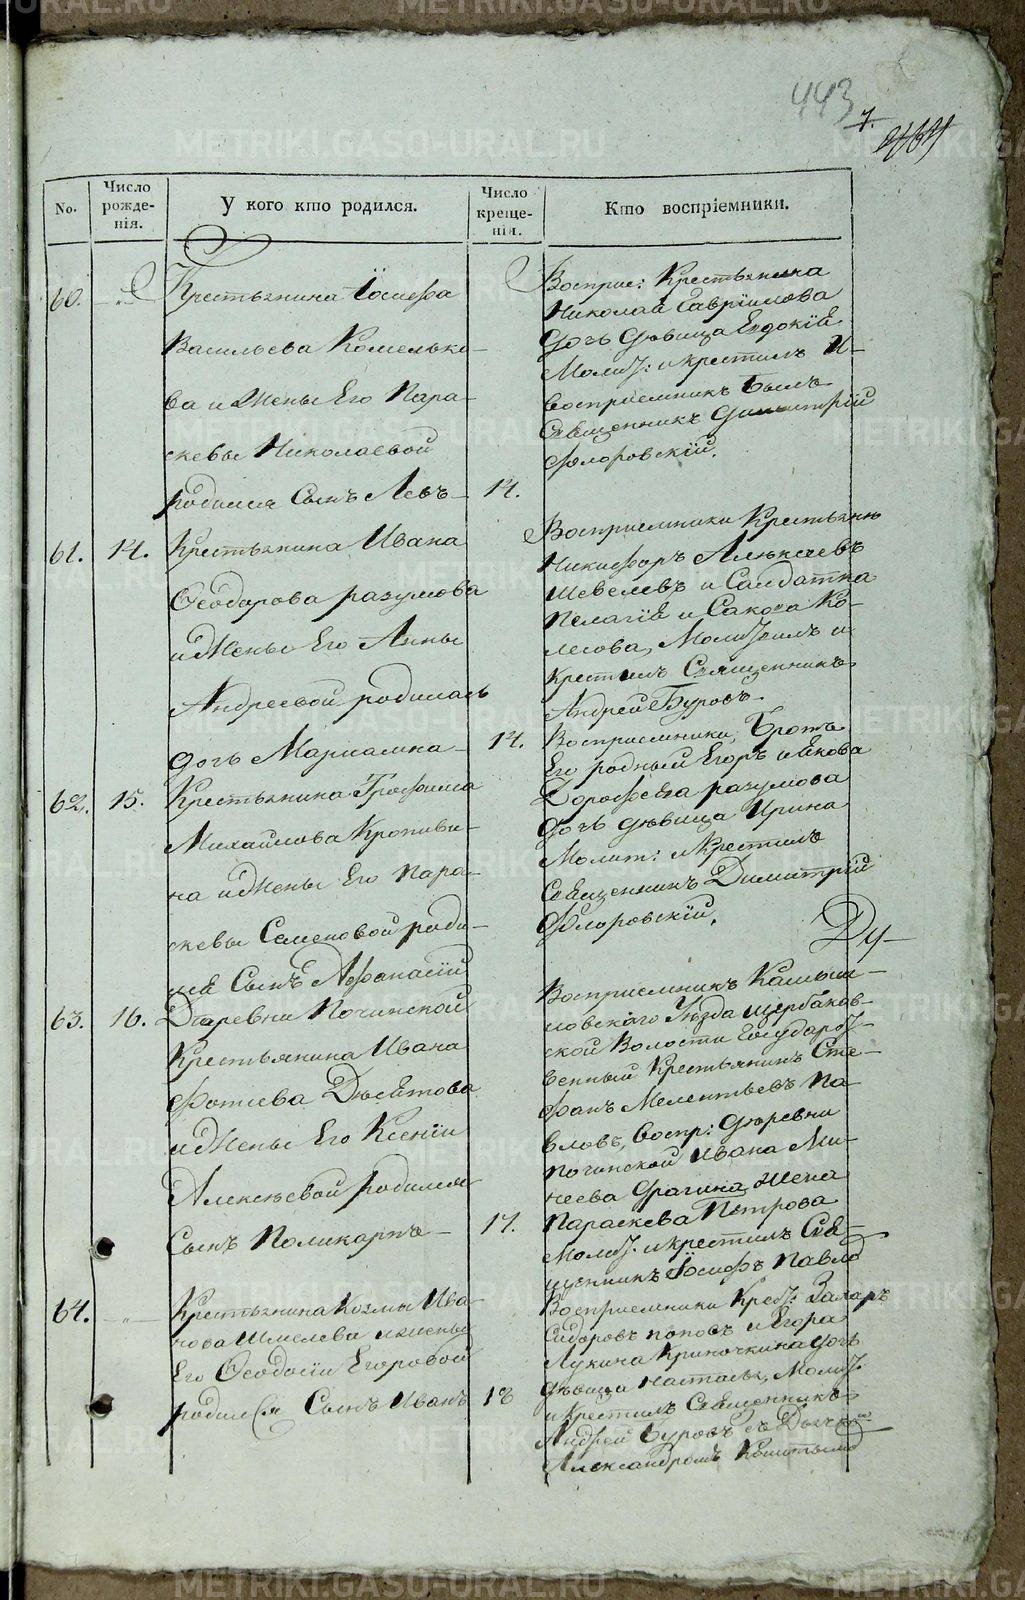 METRIKI.GASO-URAL.RU
443
7.
No.
Число рожде-нія.
У кого кто родился.
Число креще-нія.
Кто воспріемники.
60.
Крестьянина Іосифа
Васильева Комелько-
ва и Жены Его Пара-
скевы Николаевой
родился Сынъ Левъ
14.
Восприе: Крестьянина
Николай Гавріилова
дочь дѣвица Евдокія
Молит: и крестилъ и
воспріемникъ былъ
Священникъ Димитрій
Флоровскій.
61.
14.
Крестьянина Ивана
Ѳеодорова разумова
и Жены Его Анны
Андреевой родилась
дочь Мариамна
14.
Восприемники Крестьянинъ
Никифоръ Алексеевъ
Шевелевъ и Салдатка
Пелагія
Ко-
лесова, Молитвилъ и
крестилъ Священникъ
Андрей Буровъ.
62.
15.
Крестьянина Трофима
Михайлова Кропиви-
на и Жены Его Пара-
скевы Семеновой роди-
лся Сынъ Афанасій
Восприемники, братъ
Его родный Егоръ и Якова
Дорофеева разумова
дочь дѣвица Ирина
Молит: и Крестилъ
Священникъ Димитрій
Флоровскій.
Ду-
63.
16.
Деревни Починской
Крестьянина Ивана
Фотиева Дѣсятова
и Жены Его Ксеніи
Алексѣевой родился
Сынъ Поликарпъ
17.
Восприемникъ Камыш-
ловскаго Уѣзда щербаков-
ской Волости Государст-
венный Крестьянинъ Сте-
фанъ Мелентьевъ Па-
вловъ, Воспр: деревни
Починской Ивана Ми-
неева Брагина Жена
Параскева Петрова
Молит. и крестилъ Свя-
щенникъ Іосифъ Павло
64.
Крестьянина Козмы Ива-
нова Шмелева и жены
Его Ѳеодосіи Егоровой
родился Сынъ Иванъ
18
Восприемники Крест: Захаръ
Сидоровъ поповъ и Егора
Лукина Криночкина дочь
дѣвица Настасья, Молит.
и Крестилъ Священникъ
Андрей Буровъ съ Дьячкомъ
Александромъ